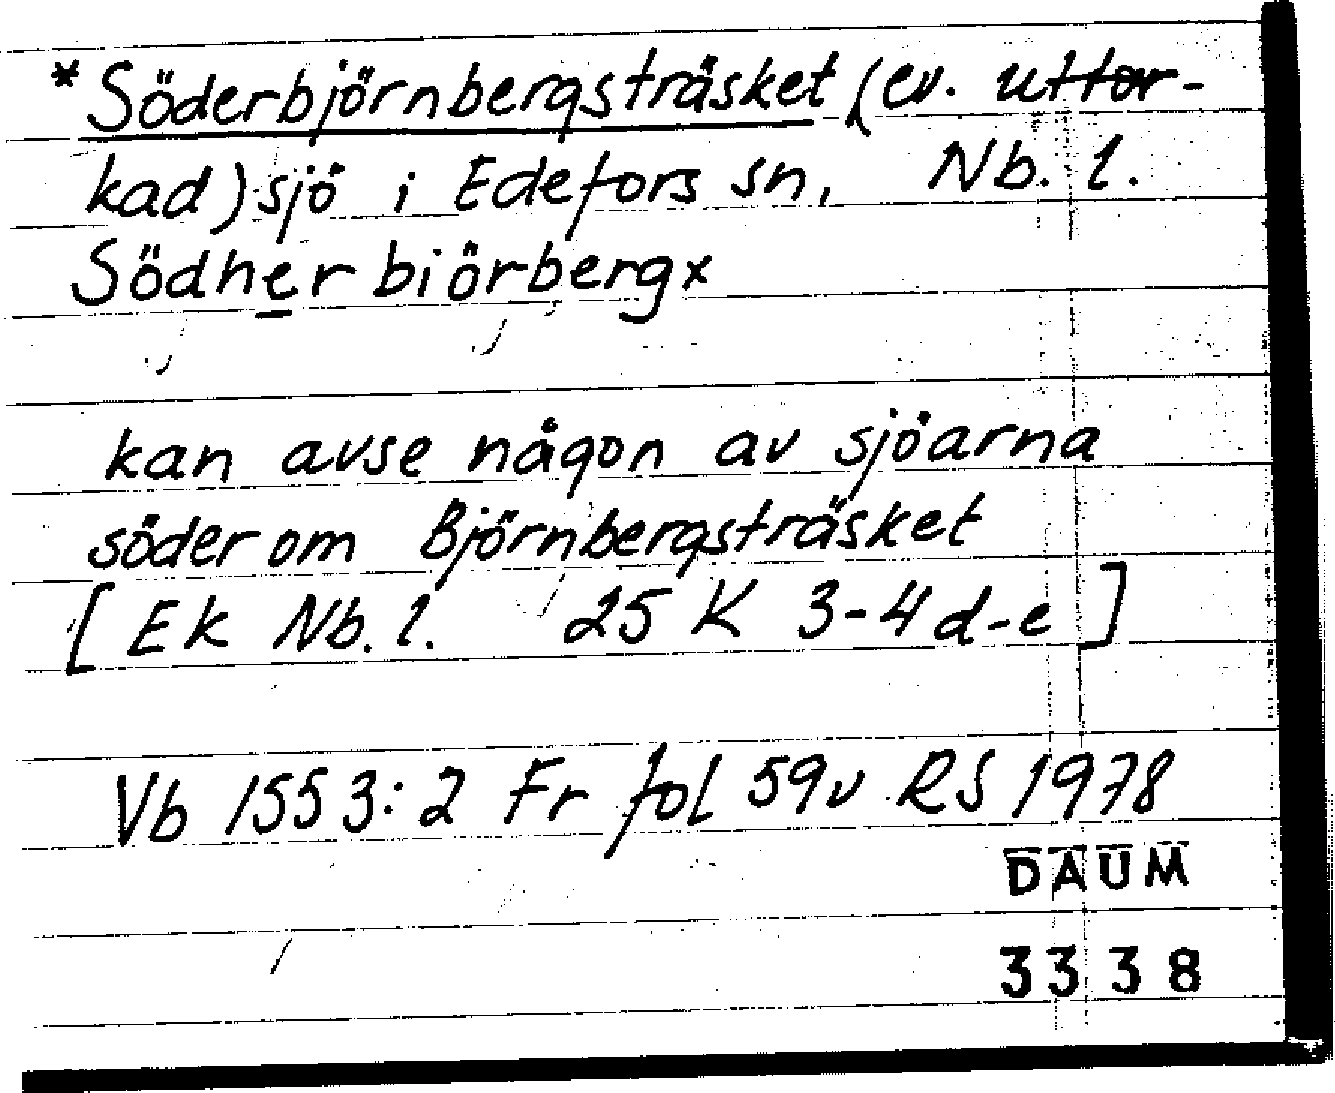 *Söderbjörnbergsträsket (ev. uttor-
kad) sjö i Edefors sn, Nb. l.
Södher biörbergx
kan avse någon av sjöarna
söder om Björnbergsträsket
[Ek Nb. l. 25 K 3-4 d-e]
Vb 1553:2 Fr fol 59v RS 1978
DAUM
3338